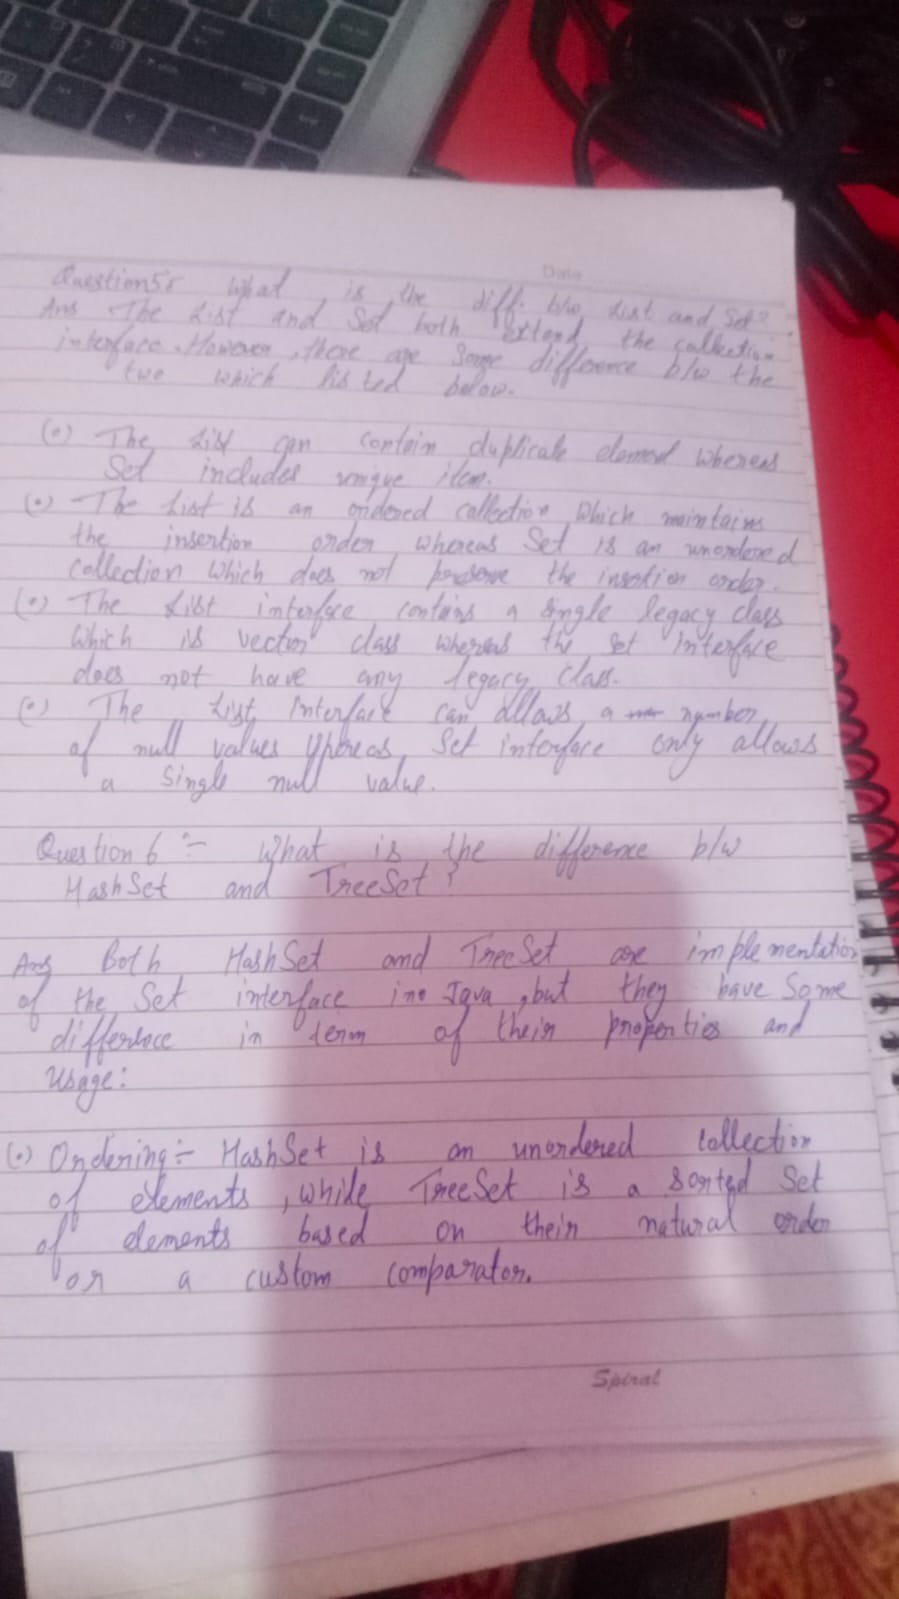 Date
Question 5:- What is the diff. b/w List and Set?
Ans The List and Set both extend the collection
interface. However, there are some difference b/w the
two which listed below.
(•) The List can contain duplicate element whereas
Set includes unique item.
(•) The List is an ordered collection which maintains
the insertion order whereas Set is an unordered
collection which does not preserve the insertion order.
(•) The List interface contains a single legacy class
which is vector class whereas the set interface
does not have any legacy class.
(•) The List interface can allows a number
of null values whereas Set interface only allows
a single null value.
Question 6 :- What is the difference b/w
HashSet and TreeSet?
Ans Both HashSet and TreeSet are implementation
of the Set interface in Java, but they have some
difference in term of their properties and
usage:
(•) Ordering:- HashSet is an unordered collection
of elements, while TreeSet is a sorted Set
of elements based on their natural order
or a custom comparator.
Spiral